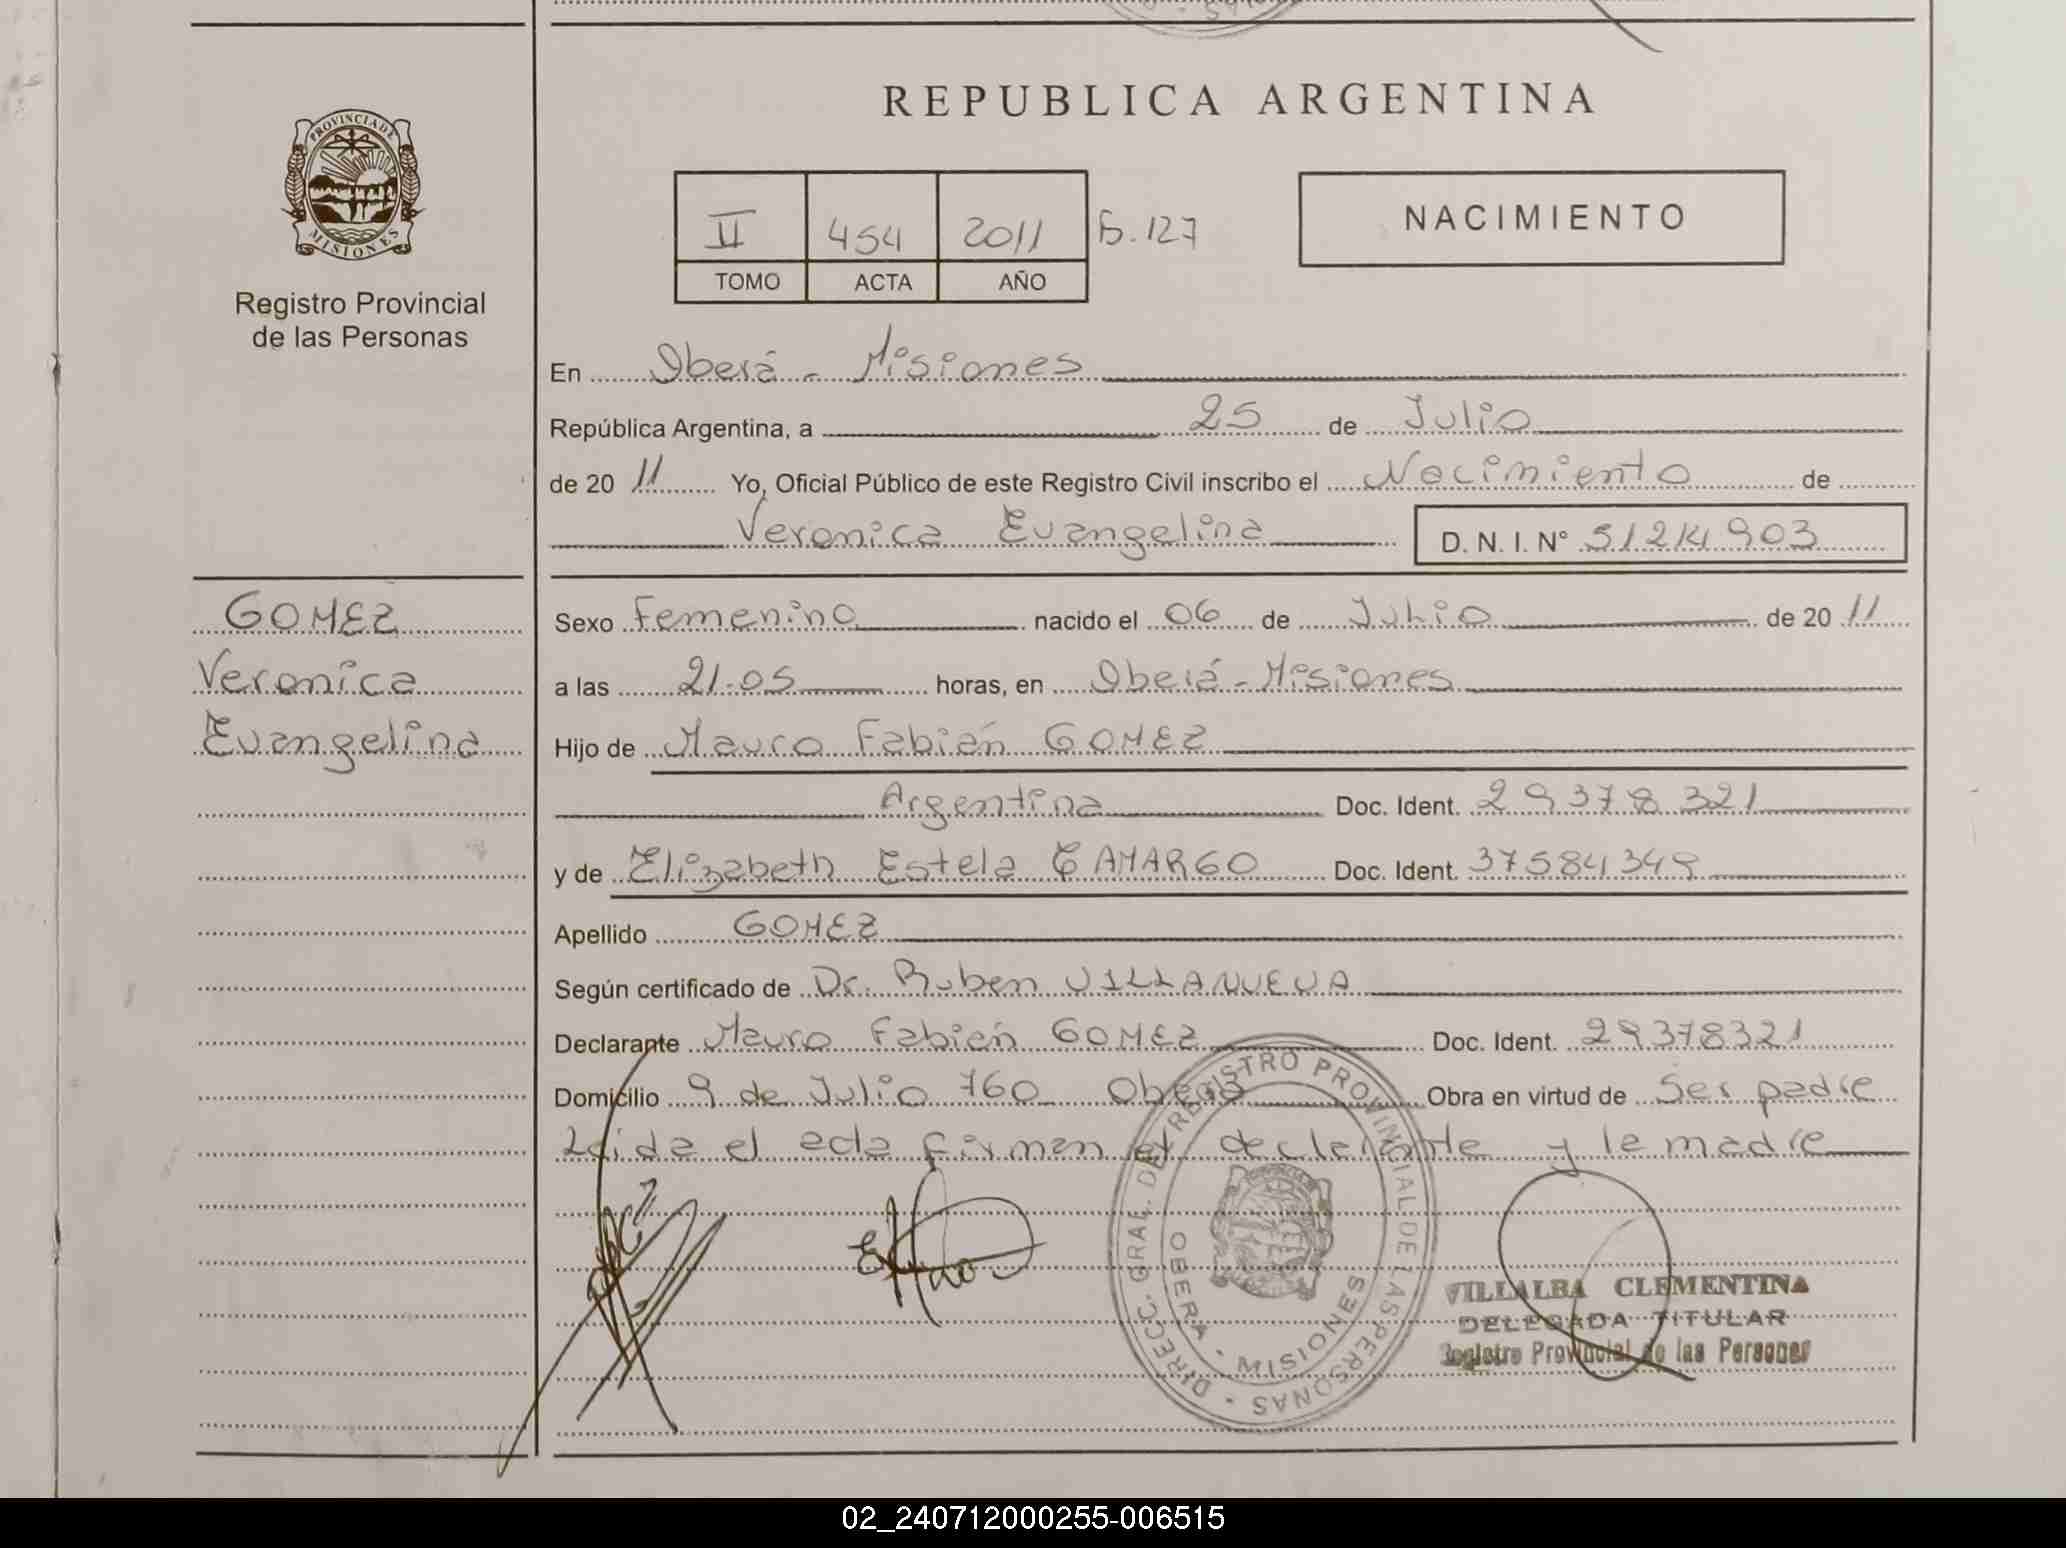 REPUBLICA ARGENTINA
PROVINCIA DE MISIONES
Registro Provincial
de las Personas
II 454 2011 F. 127
TOMO ACTA AÑO
NACIMIENTO
En Oberá - Misiones
República Argentina, a 25 de Julio
de 20 11 Yo, Oficial Público de este Registro Civil inscribo el Nacimiento de
Veronica Evangelina D. N. I. Nº 51214903
GOMEZ
Veronica
Evangelina
Sexo Femenino nacido el 06 de Julio de 20 11
a las 21.05 horas, en Oberá - Misiones
Hijo de Mauro Fabián GOMEZ
Argentina Doc. Ident. 29378321
y de Elizabeth Estela CAMARGO Doc. Ident. 37584349
Apellido GOMEZ
Según certificado de Dr. Ruben VILLANUEVA
Declarante Mauro Fabián GOMEZ Doc. Ident. 29378321
Domicilio 9 de Julio 760 Oberá Obra en virtud de Ser padre
Leida el acta firman el declarante y la madre
DIRECC. GRAL. DEL REGISTRO PROVINCIAL DE LAS PERSONAS
OBERA - MISIONES
VILLALBA CLEMENTINA
DELEGADA TITULAR
Registro Provincial de las Personas
02_240712000255-006515